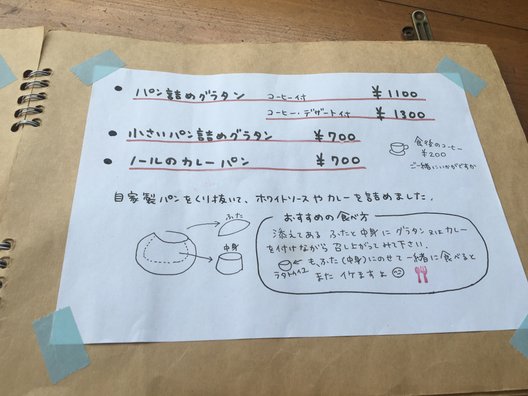 ● パン詰めグラタン コーヒー付 ¥1100
コーヒー・デザート付 ¥1300
● 小さいパン詰めグラタン ¥700
● ノールのカレーパン ¥700
食後のコーヒー
¥200
ご一緒にいかがですか
自家製パンをくり抜いて、ホワイトソースやカレーを詰めました。
ふた
中身
おすすめの食べ方
添えてある ふたと中身に グラタン又はカレー
を付けながら 召し上がってみて下さい.
も、ふた(中身)にのせて 一緒に食べると
ラタトゥイユ
また イケますよ